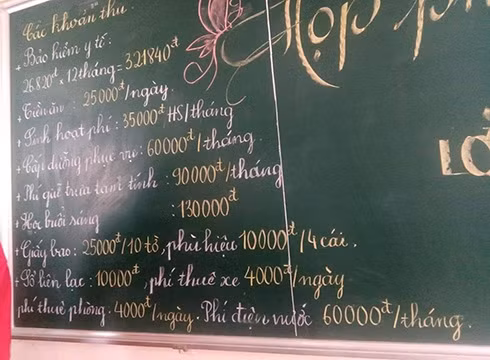 Các khoản thu.
+ Bảo hiểm y tế:
26.820đ x 12 tháng = 321840đ
+ Tiền ăn: 25000đ/ngày
+ Sinh hoạt phí: 35000đ HS/tháng
+ Cấp dưỡng phục vụ: 60000đ/tháng
+ Phí giữ trưa tạm tính: 90000đ/tháng
+ Học buổi sáng : 130000đ
+ Giấy bao: 25000đ/10 tờ, phù hiệu 10000đ/4 cái.
+ Sổ liên lạc: 10000đ, phí thuê xe 4000đ/ngày
phí thuê phòng. 4000đ/ngày. Phí điện nước 60000đ/tháng.
Họp
LỚ